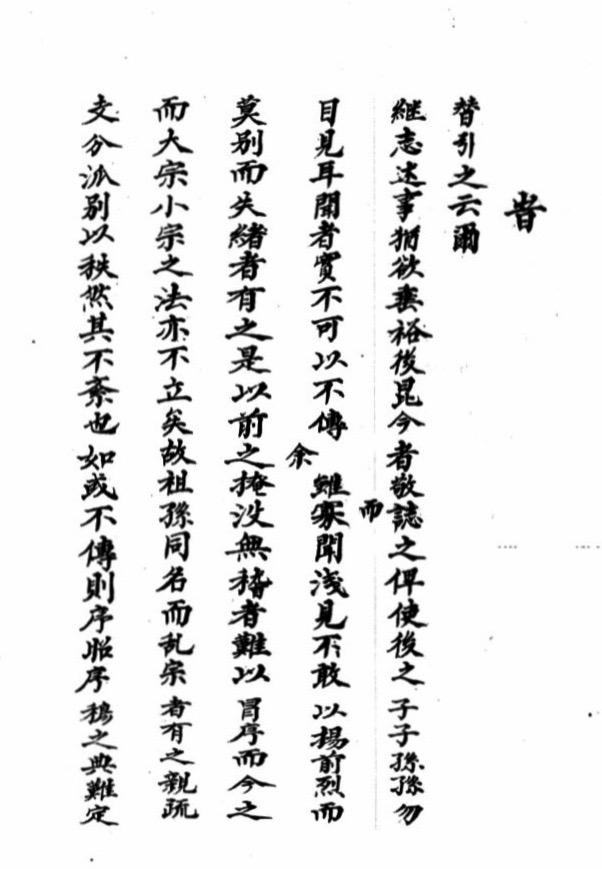 支分派別以秩然其不紊也如或不傳則序昭序穆之典難定
而大宗小宗之法亦不立矣故祖孫同名而乱宗者有之親疏
莫別而失緒者有之是以前之掩没無稽者難以冒序而今之
目見耳聞者實不可以不傳余雖寡聞浅見不敢以揚前烈而
継志述事猶欲垂裕後昆今者敬而誌之俾使後之子子孫孫勿
替引之云爾
旹